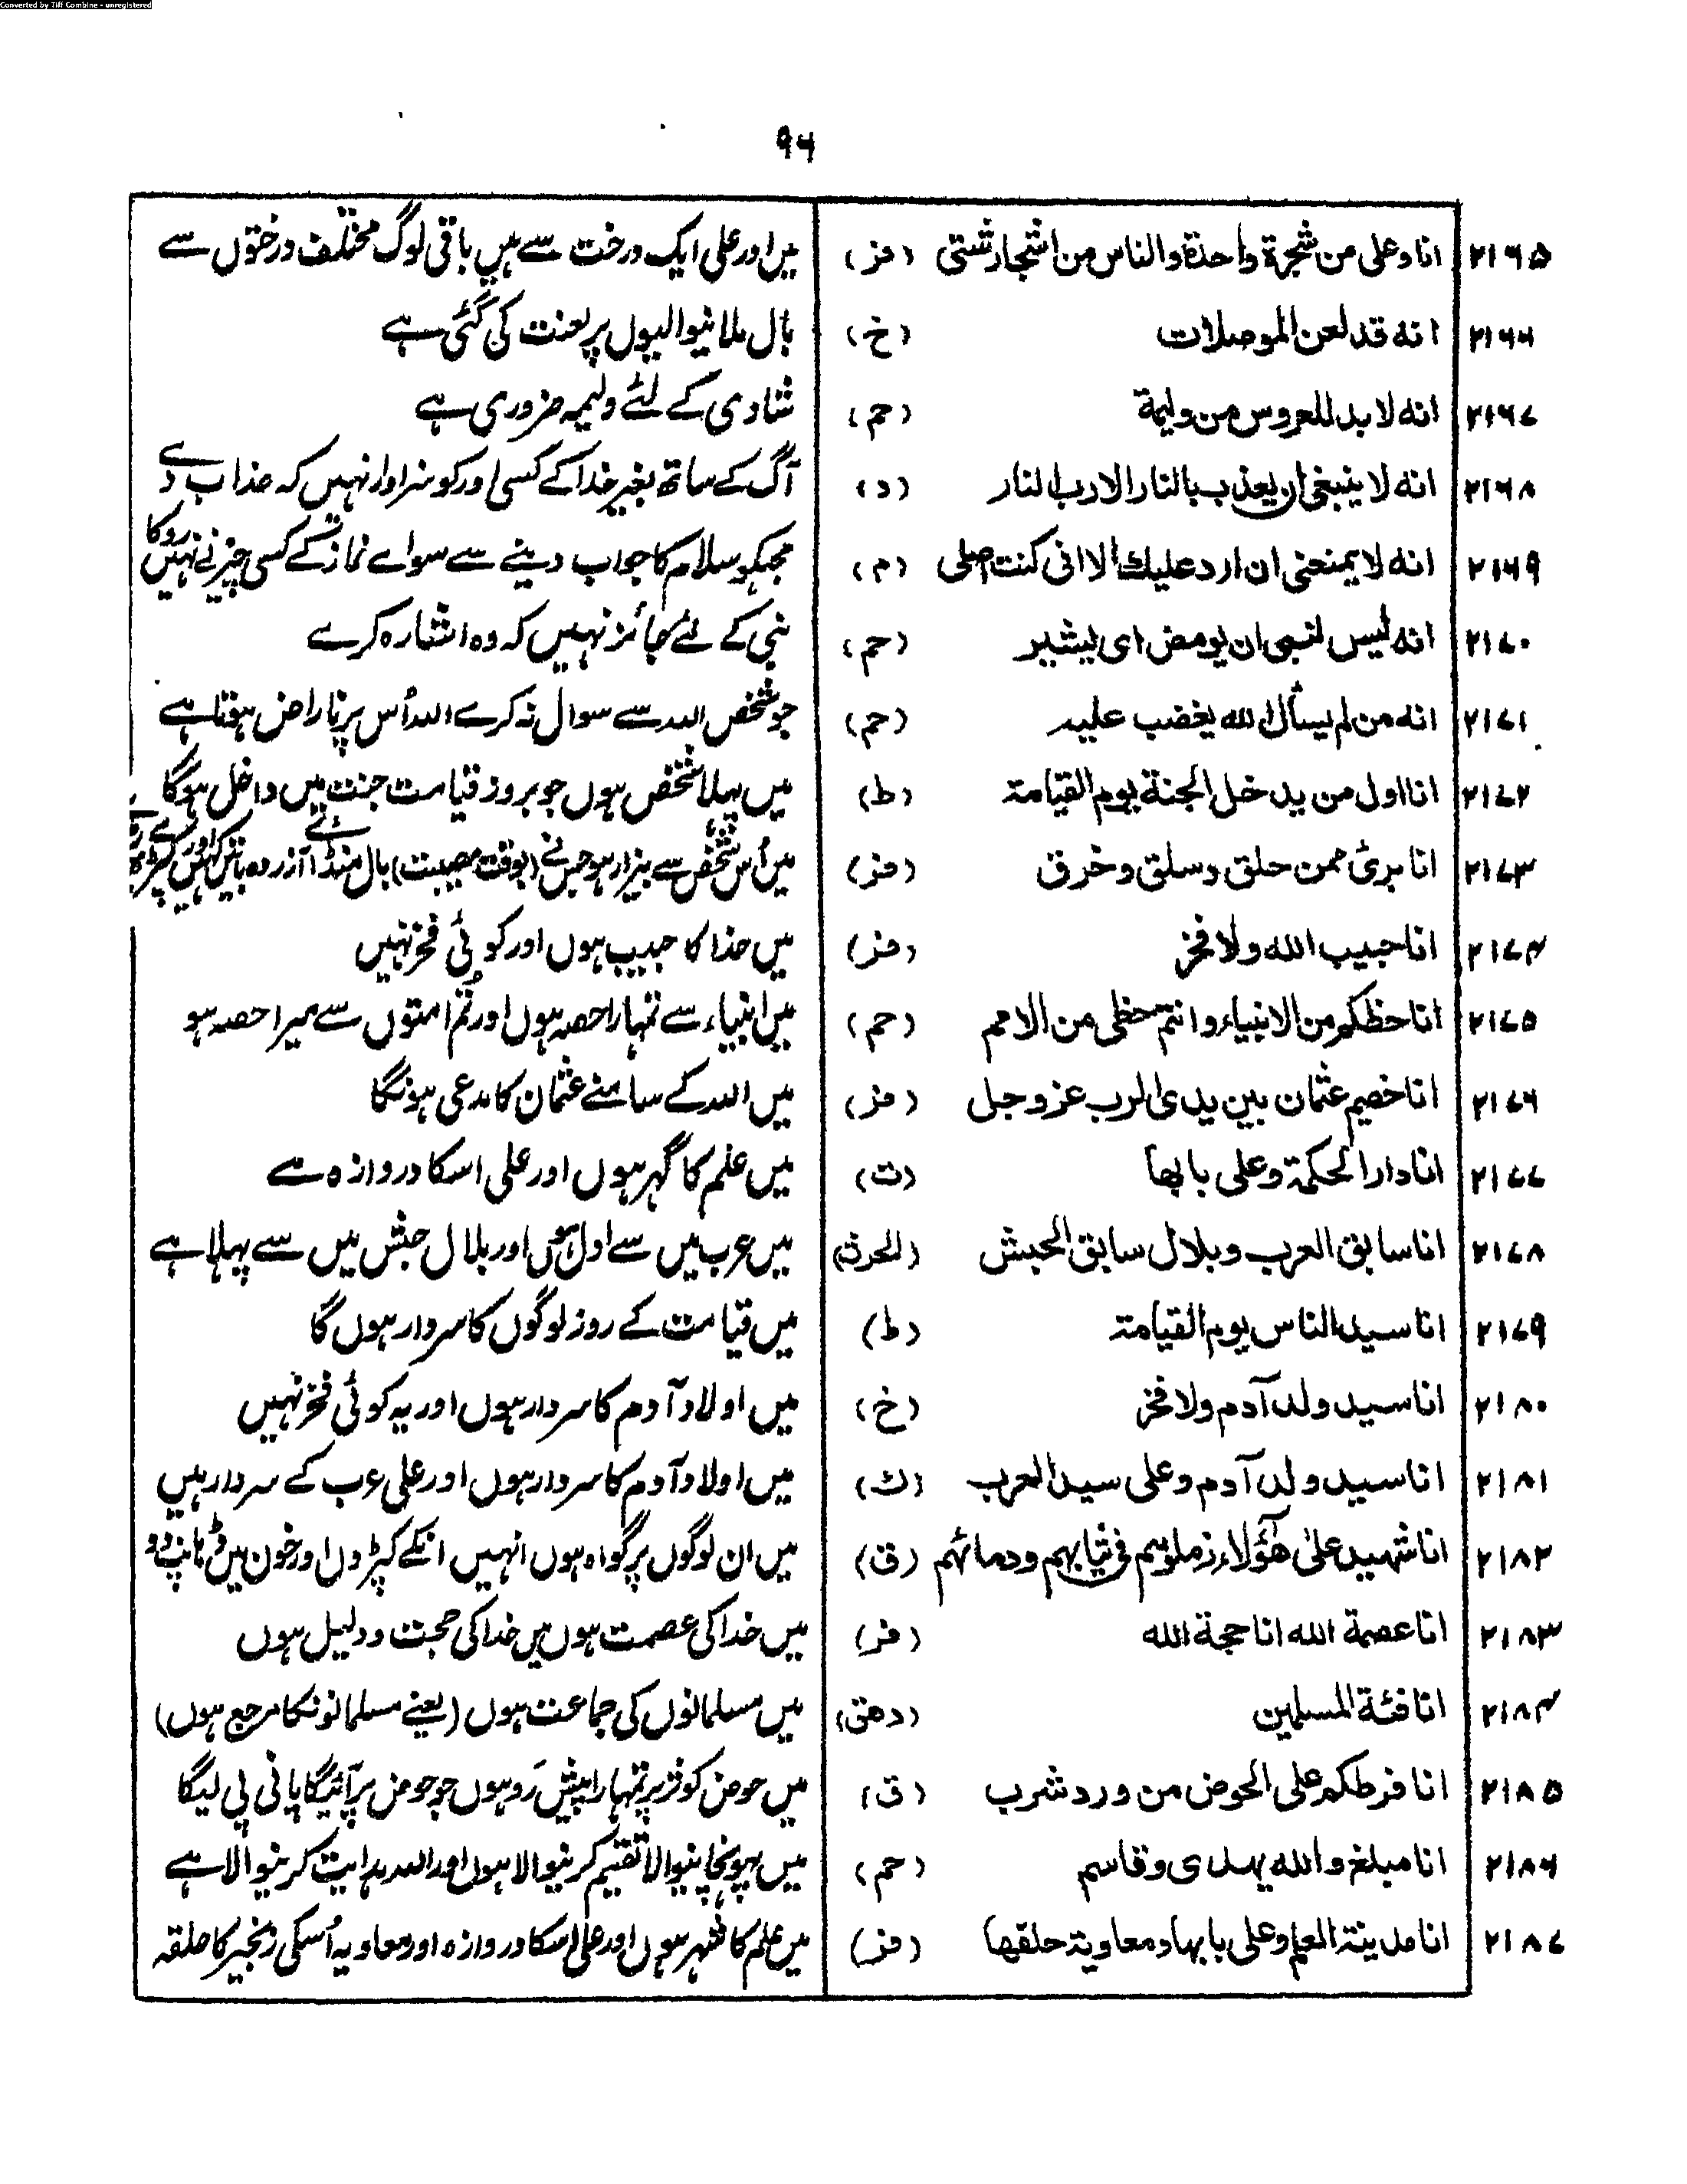 Converted by Tiff Combine - unregistered
۹۶
۲۱۶۵ انا وعلی من شجرة واحدة والناس من اشجار شتی (فز) میں اور علی ایک درخت سے ہیں باقی لوگ مختلف درختوں سے
۲۱۶۶ انه قد لعن الموصلات (خ) بال ملانیوالیوں پر لعنت کی گئی ہے
۲۱۶۷ انه لا بد للعروس من ولیمة (حم) شادی کے لئے ولیمہ ضروری ہے
۲۱۶۸ انه لا ینبغی ان یعذب بالنار الا رب النار (د) آگ کے ساتھ بغیر خدا کے کسی اور کو سزاوار نہیں کہ عذاب دے
۲۱۶۹ انه لا یمنعنی ان ارد علیك الا انی کنت اصلی (م) مجکو سلام کا جواب دینے سے سواے نماز کے کسی چیز نے نہیں روکا
۲۱۷۰ انه لیس لنبی ان یومض ای یشیر (حم) نبی کے لئے جائز نہیں کہ وہ اشارہ کرے
۲۱۷۱ انه من لم یسأل الله یغضب علیه (حم) جو شخص اللہ سے سوال نہ کرے اللہ اُس پر ناراض ہوتا ہے
۲۱۷۲ انا اول من یدخل الجنة یوم القیامة (ط) میں پہلا شخص ہوں جو بروز قیامت جنت میں داخل ہوگا
۲۱۷۳ انا بریٔ ممن حلق وسلق وخرق (فز) میں اُس شخص سے بیزار ہو جس نے (بوقت مصیبت) بال منڈائے آزردہ باتیں کہیں اور کپڑے
۲۱۷۴ انا حبیب الله ولا فخز (فز) میں خدا کا حبیب ہوں اور کوئی فخر نہیں
۲۱۷۵ انا حظکم من الانبیاء وانتم حظی من الامم (حم) میں انبیاء سے تمہارا حصہ ہوں اور تُم امتوں سے میرا حصہ ہو
۲۱۷۶ انا خصیم عثمان بین یدی الرب عز وجل (فز) میں اللہ کے سامنے عثمان کا مدعی ہونگا
۲۱۷۷ انا دار الحکمة وعلی بابها (ت) میں علم کا گہر ہوں اور علی اسکا دروازہ ہے
۲۱۷۸ انا سابق العرب وبلال سابق الحبش (الحرث) میں عرب میں سے اول ہوں اور بلال حبش میں سے پہلا ہے
۲۱۷۹ انا سید الناس یوم القیامة (ط) میں قیامت کے روز لوگوں کا سردار ہوں گا
۲۱۸۰ انا سید ولد آدم ولا فخز (خ) میں اولاد آدم کا سردار ہوں اور یہ کوئی فخر نہیں
۲۱۸۱ انا سید ولد آدم وعلی سید العرب (ك) میں اولاد آدم کا سردار ہوں اور علی عرب کے سردار ہیں
۲۱۸۲ انا شهید علیٰ هٰؤلاء زملوهم فی ثیابهم ودمائهم (ق) میں ان لوگوں پر گواہ ہوں انہیں انکے کپڑوں اور خون میں ڈہانپ دو
۲۱۸۳ انا عصمة الله انا حجة الله (فز) میں خدا کی عصمت ہوں میں خدا کی حجت ودلیل ہوں
۲۱۸۴ انا فئة المسلمین (دهق) میں مسلمانوں کی جماعت ہوں (یعنے مسلمانونکا مرجع ہوں)
۲۱۸۵ انا فرطکم علی الحوض من ورد شرب (ق) میں حوض کوثر پر تمہارا پیش رَو ہوں جو حوض پر آئیگا پانی پی لیگا
۲۱۸۶ انا مبلغ والله یهدی وقاسم (حم) میں پہونچانیوالا تقسیم کرنیوالا ہوں اور اللہ ہدایت کرنیوالا ہے
۲۱۸۷ انا مدینة العلم وعلی بابها ومعاویة حلقها (فز) میں علم کا شہر ہوں اور علی اسکا دروازہ اور معاویہ اُسکی زنجیر کا حلقہ